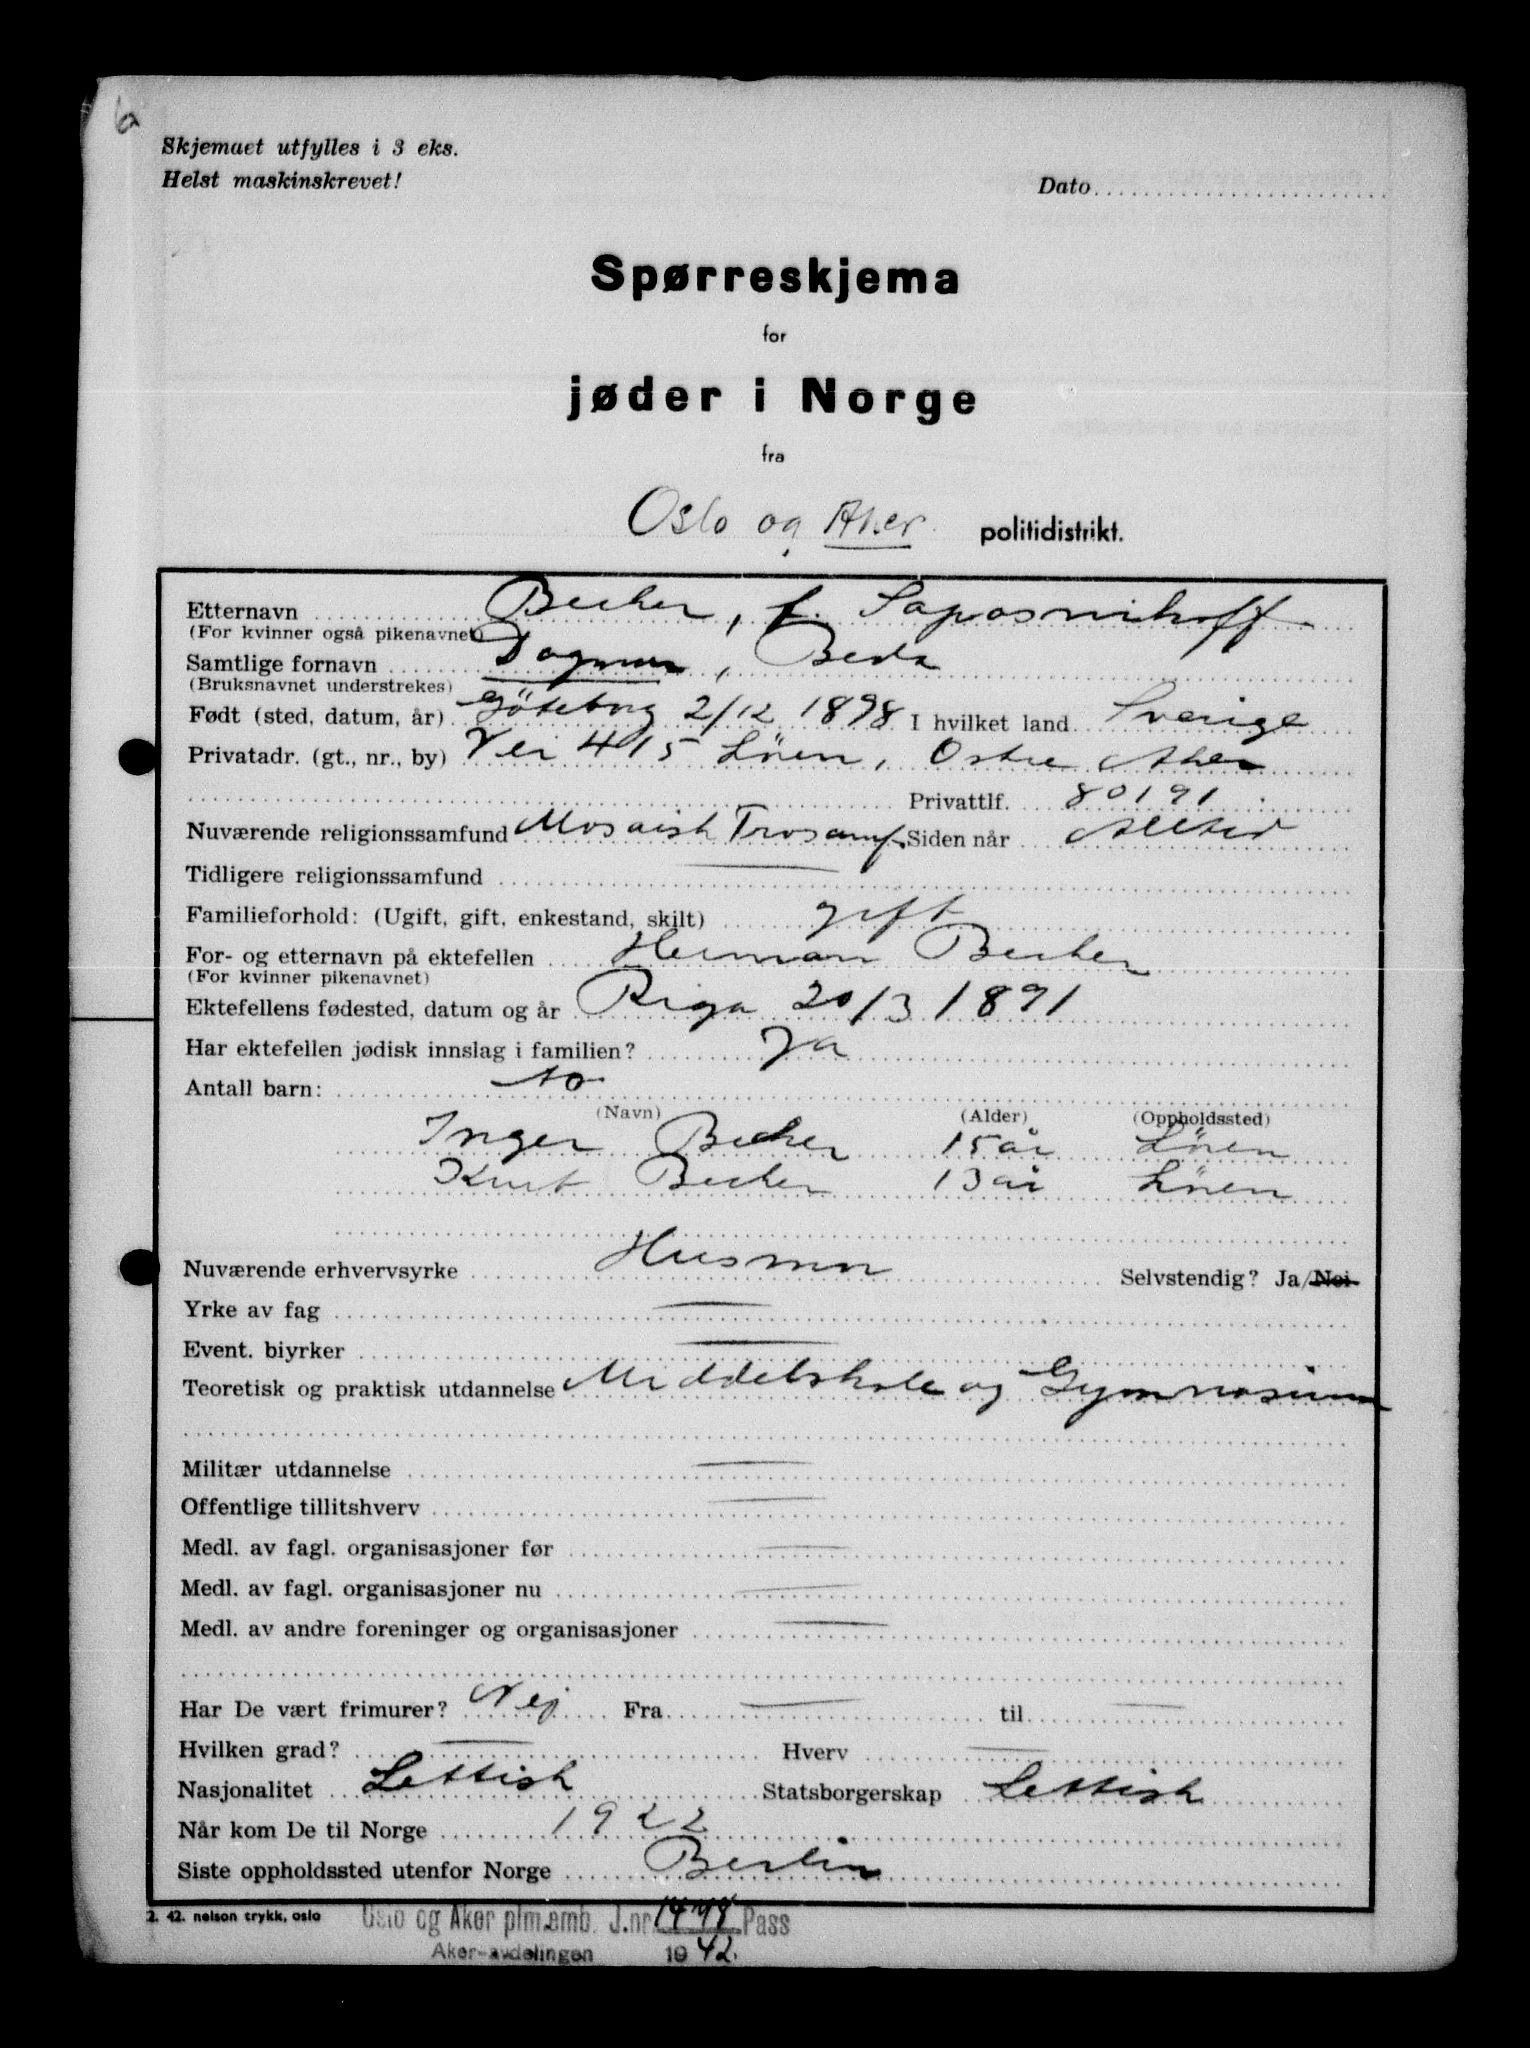 Skjemaet utfylles i 3 eks.
Helst maskinskrevet!
Dato
Spørreskjema
for
jøder i Norge
fra
Oslo og Aker politidistrikt.
Etternavn Becher, f. Saposnikoff
(For kvinner også pikenavnet)
Samtlige fornavn Dagmar, Beda
(Bruksnavnet understrekes)
Født (sted, datum, år) Göteborg 2/12 1898 I hvilket land Sverige
Privatadr. (gt., nr., by) Vei 415 Lören, Östre Aker
Privattlf. 80191
Nuværende religionssamfund Mosaisk Trosamf. Siden når Alltid
Tidligere religionssamfund
Familieforhold: (Ugift, gift, enkestand, skilt) gift
For- og etternavn på ektefellen Herman Becher
(For kvinner pikenavnet)
Ektefellens fødested, datum og år Riga 20/3 1891
Har ektefellen jødisk innslag i familien? Ja
Antall barn: to
(Navn) (Alder) (Oppholdssted)
Inger Becher 15 år Lören
Kurt Becher 13 år Lören
Nuværende erhvervsyrke Husmor Selvstendig? Ja/Nei
Yrke av fag
Event. biyrker
Teoretisk og praktisk utdannelse Middelskole og Gymnasium
Militær utdannelse
Offentlige tillitshverv
Medl. av fagl. organisasjoner før
Medl. av fagl. organisasjoner nu
Medl. av andre foreninger og organisasjoner
Har De vært frimurer? Nej Fra til
Hvilken grad? Hverv
Nasjonalitet Lettisk Statsborgerskap Lettisk
Når kom De til Norge 1922
Siste oppholdssted utenfor Norge Berlin
2. 42. nelson trykk, oslo
Oslo og Aker plm.emb. J.nr. 1448 Pass
Aker-avdelingen 1942.